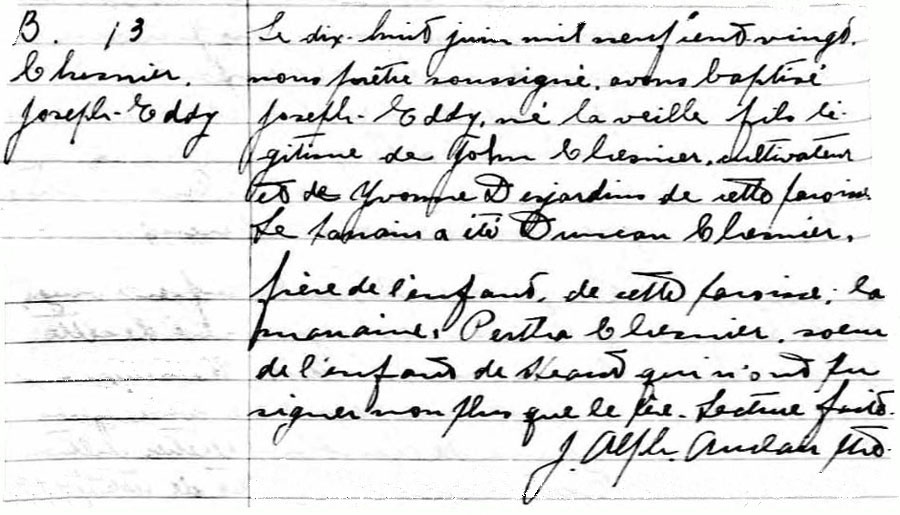 B. 13
Chesnier,
Joseph-Eddy
Le dix-huit juin mil neuf cent-vingt,
nous prêtre soussigné, avons baptisé
Joseph-Eddy, né la veille fils lé-
gitime de John Chesnier, cultivateur
et de Yvonne Desjardins de cette paroisse.
Le parrain a été Duncan Chesnier,
frère de l'enfant, de cette paroisse; la
marraine, Bertha Chesnier, soeur
de l'enfant de qui n'ont pu
signer non plus que le père. Lecture faite.
J. Alph. Ptre.